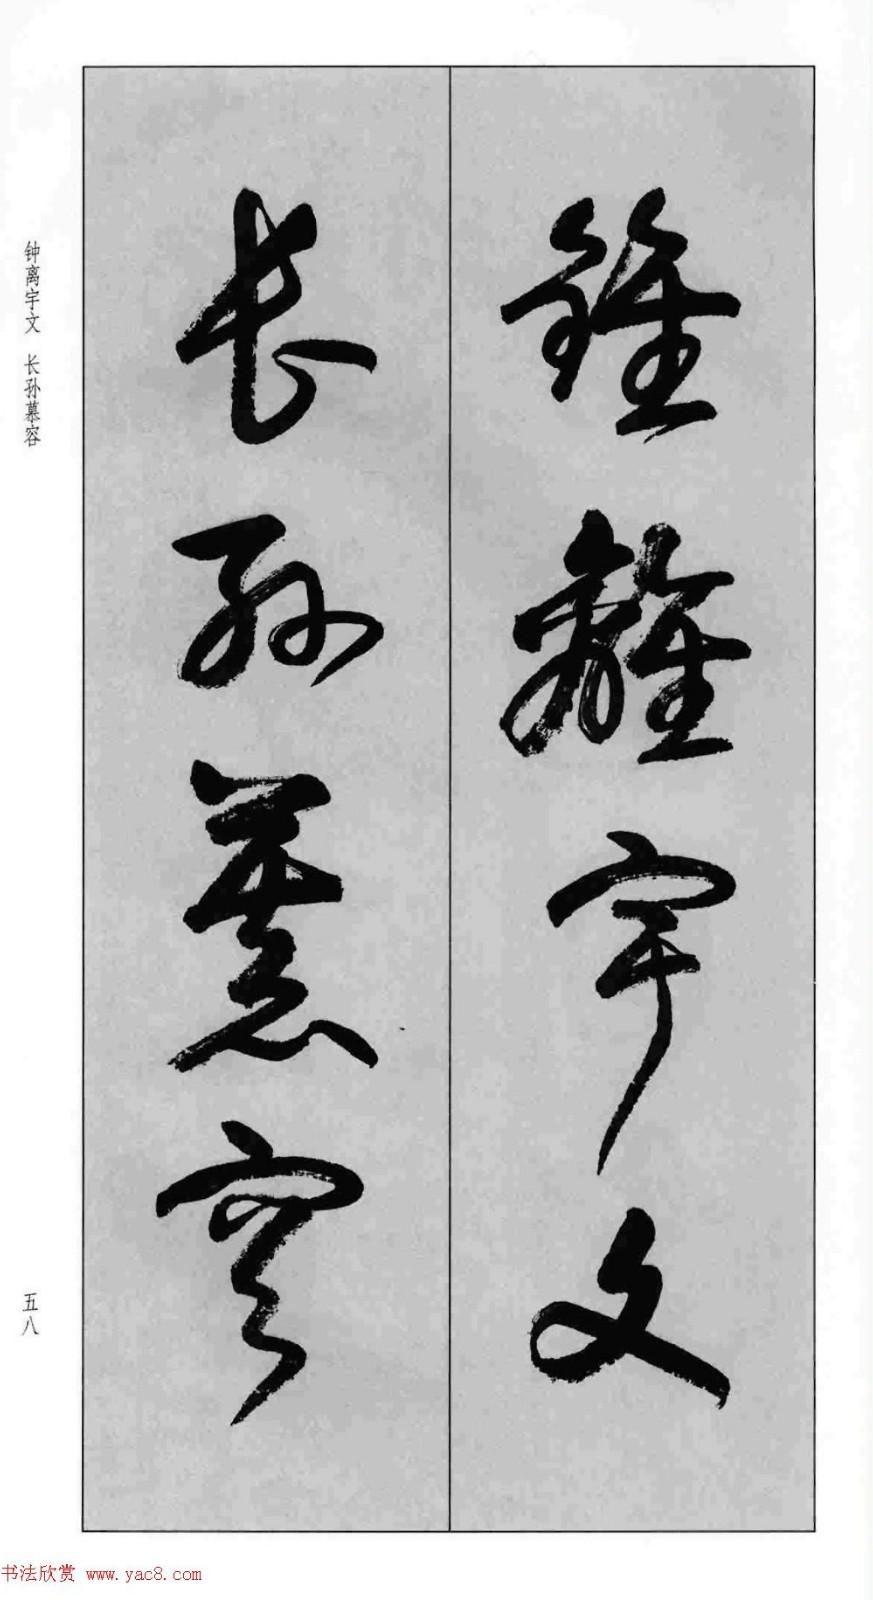 鍾離宇文
長孫慕容
钟离宇文 长孙慕容
五八
书法欣赏 www.yac8.com